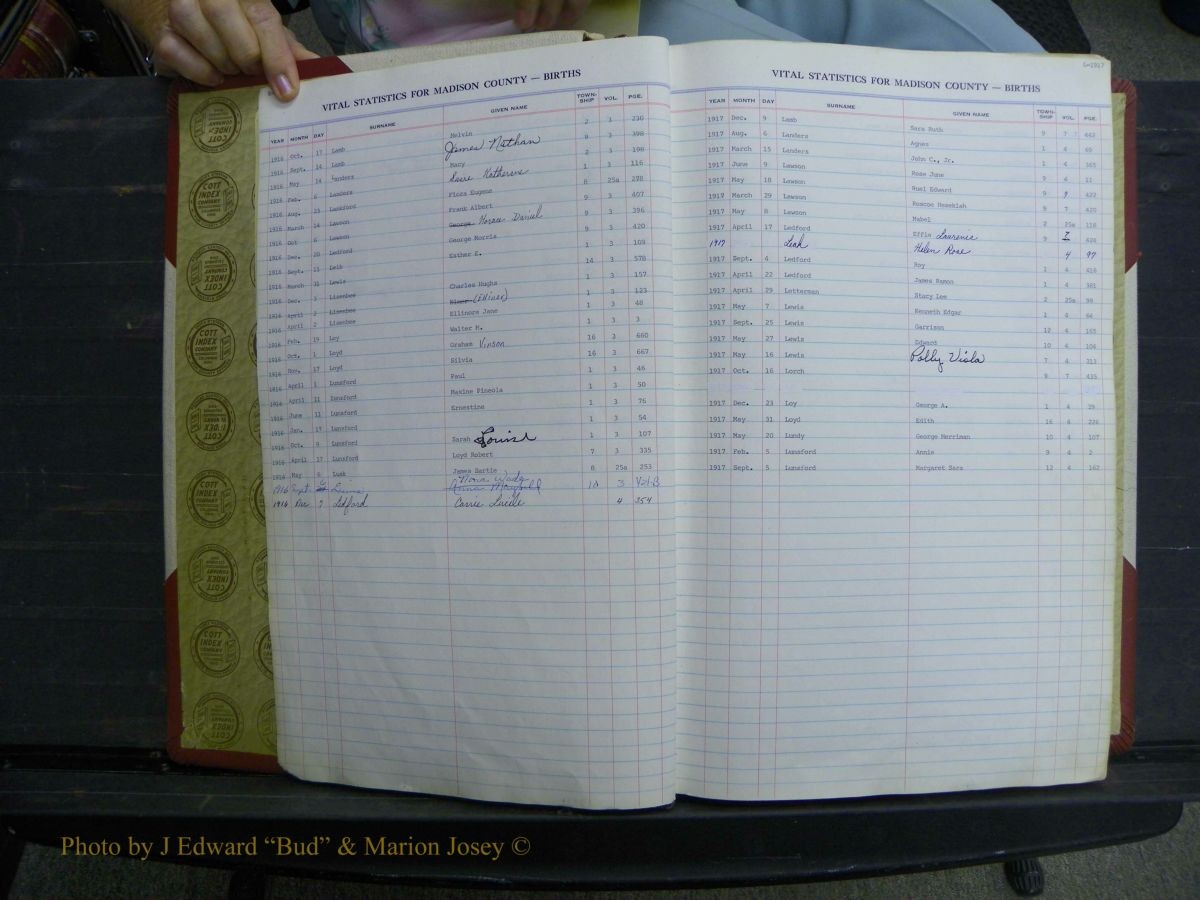 VITAL STATISTICS FOR MADISON COUNTY — BIRTHS
YEAR MONTH DAY SURNAME GIVEN NAME TOWN-SHIP VOL. PGE.
1916 Oct. 17 Lamb Melvin 2 3 230
1916 Sept. 14 Lamb James Nathan 8 3 398
1916 May 14 Landers Macy 2 3 198
1916 Feb. 6 Landers Katherene 1 3 116
1916 Aug. 23 Lankford Flora Eugene 8 25a 298
1916 March 14 Lawson Frank Albert 9 3 407
1916 Oct 6 Lawson George Horace Daniel 9 3 396
1916 Dec. 20 Ledford George Morris 9 3 420
1916 Sept. 15 Esther E. 1 3 109
1916 March 31 Lewis 14 3 578
1916 Dec. 3 Lisenbee Charles Hughs 1 3 157
1916 April 2 Lisenbee (Ellinor) 1 3 123
1916 April 2 Lisenbee Ellinora Jane 1 3 48
1916 Feb. 19 Loy Walter M. 1 3 3
1916 Oct. 1 Loyd Graham Vinson 16 3 660
1916 Nov. 17 Loyd Silvia 16 3 667
1916 April 1 Lunsford Paul 1 3 46
1916 June 11 Lunsford Maxine Pineola 1 3 50
1916 Jan. 17 Lunsford Ernestine 1 3 76
1916 Oct. 9 Lunsford 1 3 54
1916 April 17 Lunsford Sarah Louise 1 3 107
1916 May 6 Lusk Loyd Robert 7 3 335
James Hartle 8 25a 253
1916 Sept. Lewis Nona Wady 10 3 Vol-B
1916 Dec 7 Ledford Carrie Lucile 4 354
L-1917
VITAL STATISTICS FOR MADISON COUNTY — BIRTHS
YEAR MONTH DAY SURNAME GIVEN NAME TOWN-SHIP VOL. PGE.
1917 Dec. 9 Lamb Sara Ruth 9 7 442
1917 Aug. 6 Landers Agnes 1 4 69
1917 March 15 Landers John C., Jr. 1 4 365
1917 June 9 Lawson Rose June 9 4 11
1917 May 18 Lawson Ruel Edward 9 7 422
1917 March 29 Lawson Roscoe Hezekiah 9 7 420
1917 May 8 Lawson Mabel 2 25a 116
1917 April 17 Ledford Effie Laurenie 9 7 426
1917 Leak Helen Rose 4 97
1917 Sept. 4 Ledford Roy 1 4 418
1917 April 22 Ledford James Ramon 1 4 381
1917 April 29 Letterman Stacy Lee 2 25a 98
1917 May 7 Lewis Kenneth Edgar 1 4 66
1917 Sept. 25 Lewis Garrison 12 4 165
1917 May 27 Lewis Edward 10 4 106
1917 May 16 Lewis Polly Viola 7 4 313
1917 Oct. 16 Lorch 8 7 435
1917 Dec. 23 Loy George A. 1 4 29
1917 May 31 Loyd Edith 16 4 226
1917 May 20 Lundy George Merriman 10 4 107
1917 Feb. 5 Lunsford Annie 9 4 2
1917 Sept. 5 Lunsford Margaret Sara 12 4 162
COTT INDEX COMPANY
Photo by J Edward “Bud” & Marion Josey ©